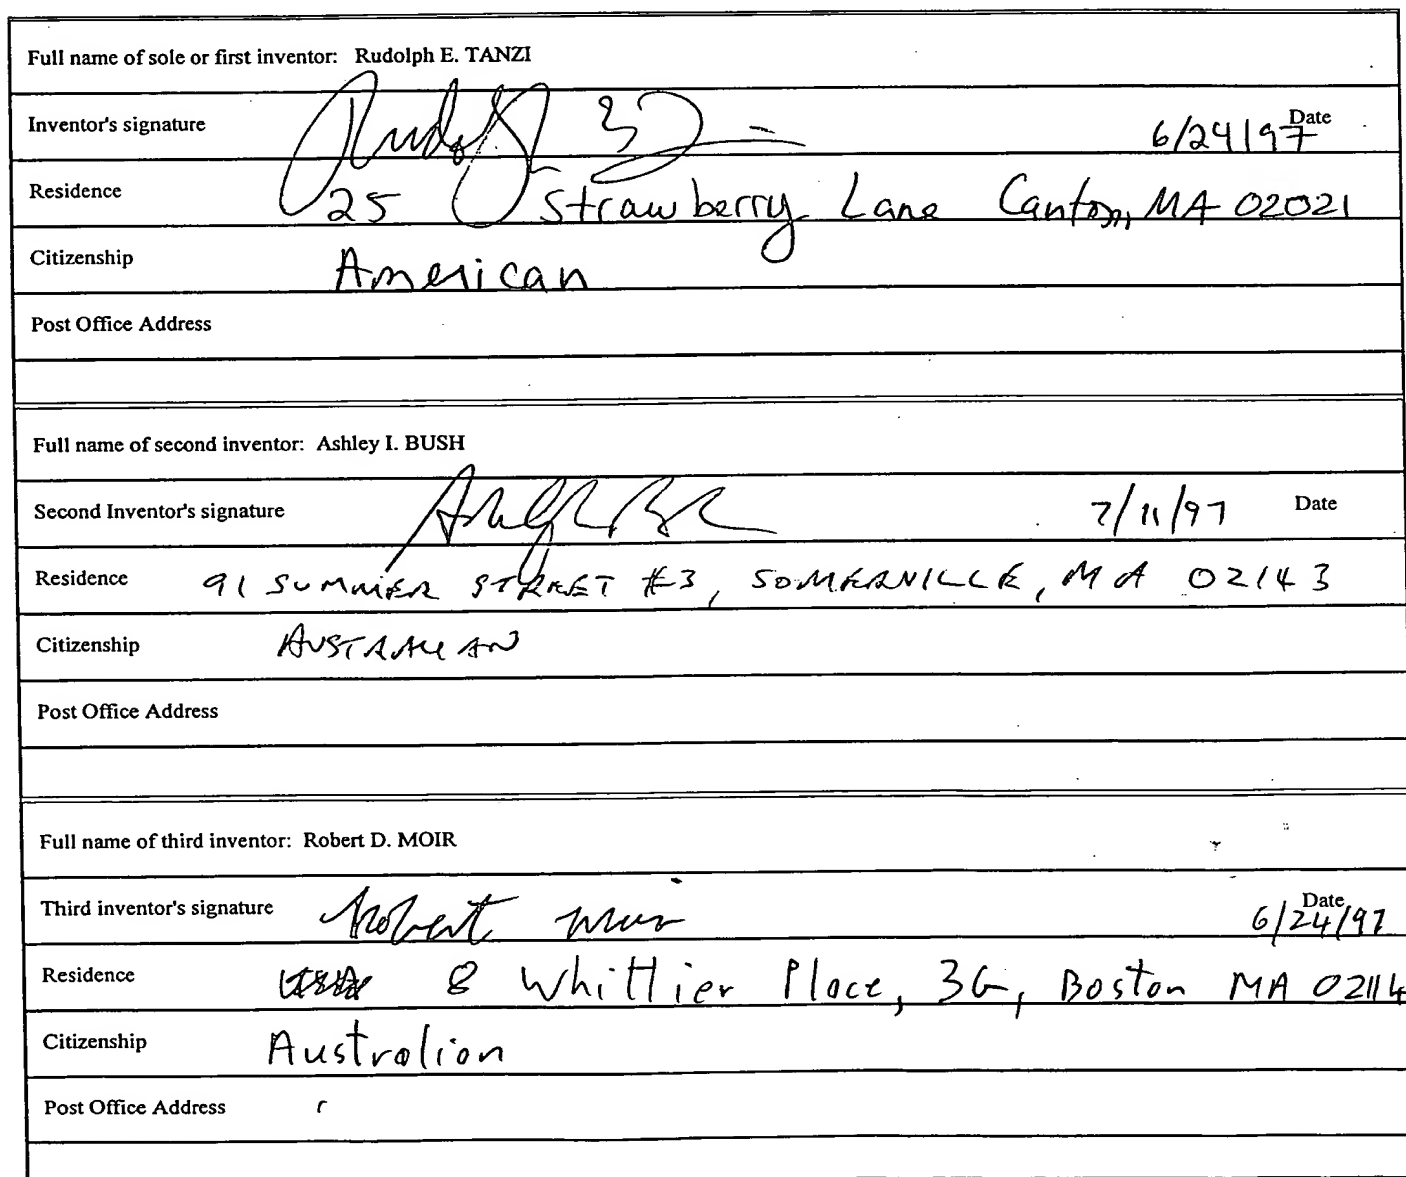 Full name of sole or first inventor: Rudolph E. TANZI
Inventor's signature 6/24/97 Date
Residence 25 Strawberry Lane Canton, MA 02021
Citizenship American
Post Office Address
Full name of second inventor: Ashley I. BUSH
Second Inventor's signature 7/11/97 Date
Residence 91 SUMMER STREET #3, SOMERVILLE, MA 02143
Citizenship AUSTRALIAN
Post Office Address
Full name of third inventor: Robert D. MOIR
Third inventor's signature Robert Moir 6/24/97 Date
Residence 8 Whittier Place, 3G, Boston MA 02114
Citizenship Australian
Post Office Address